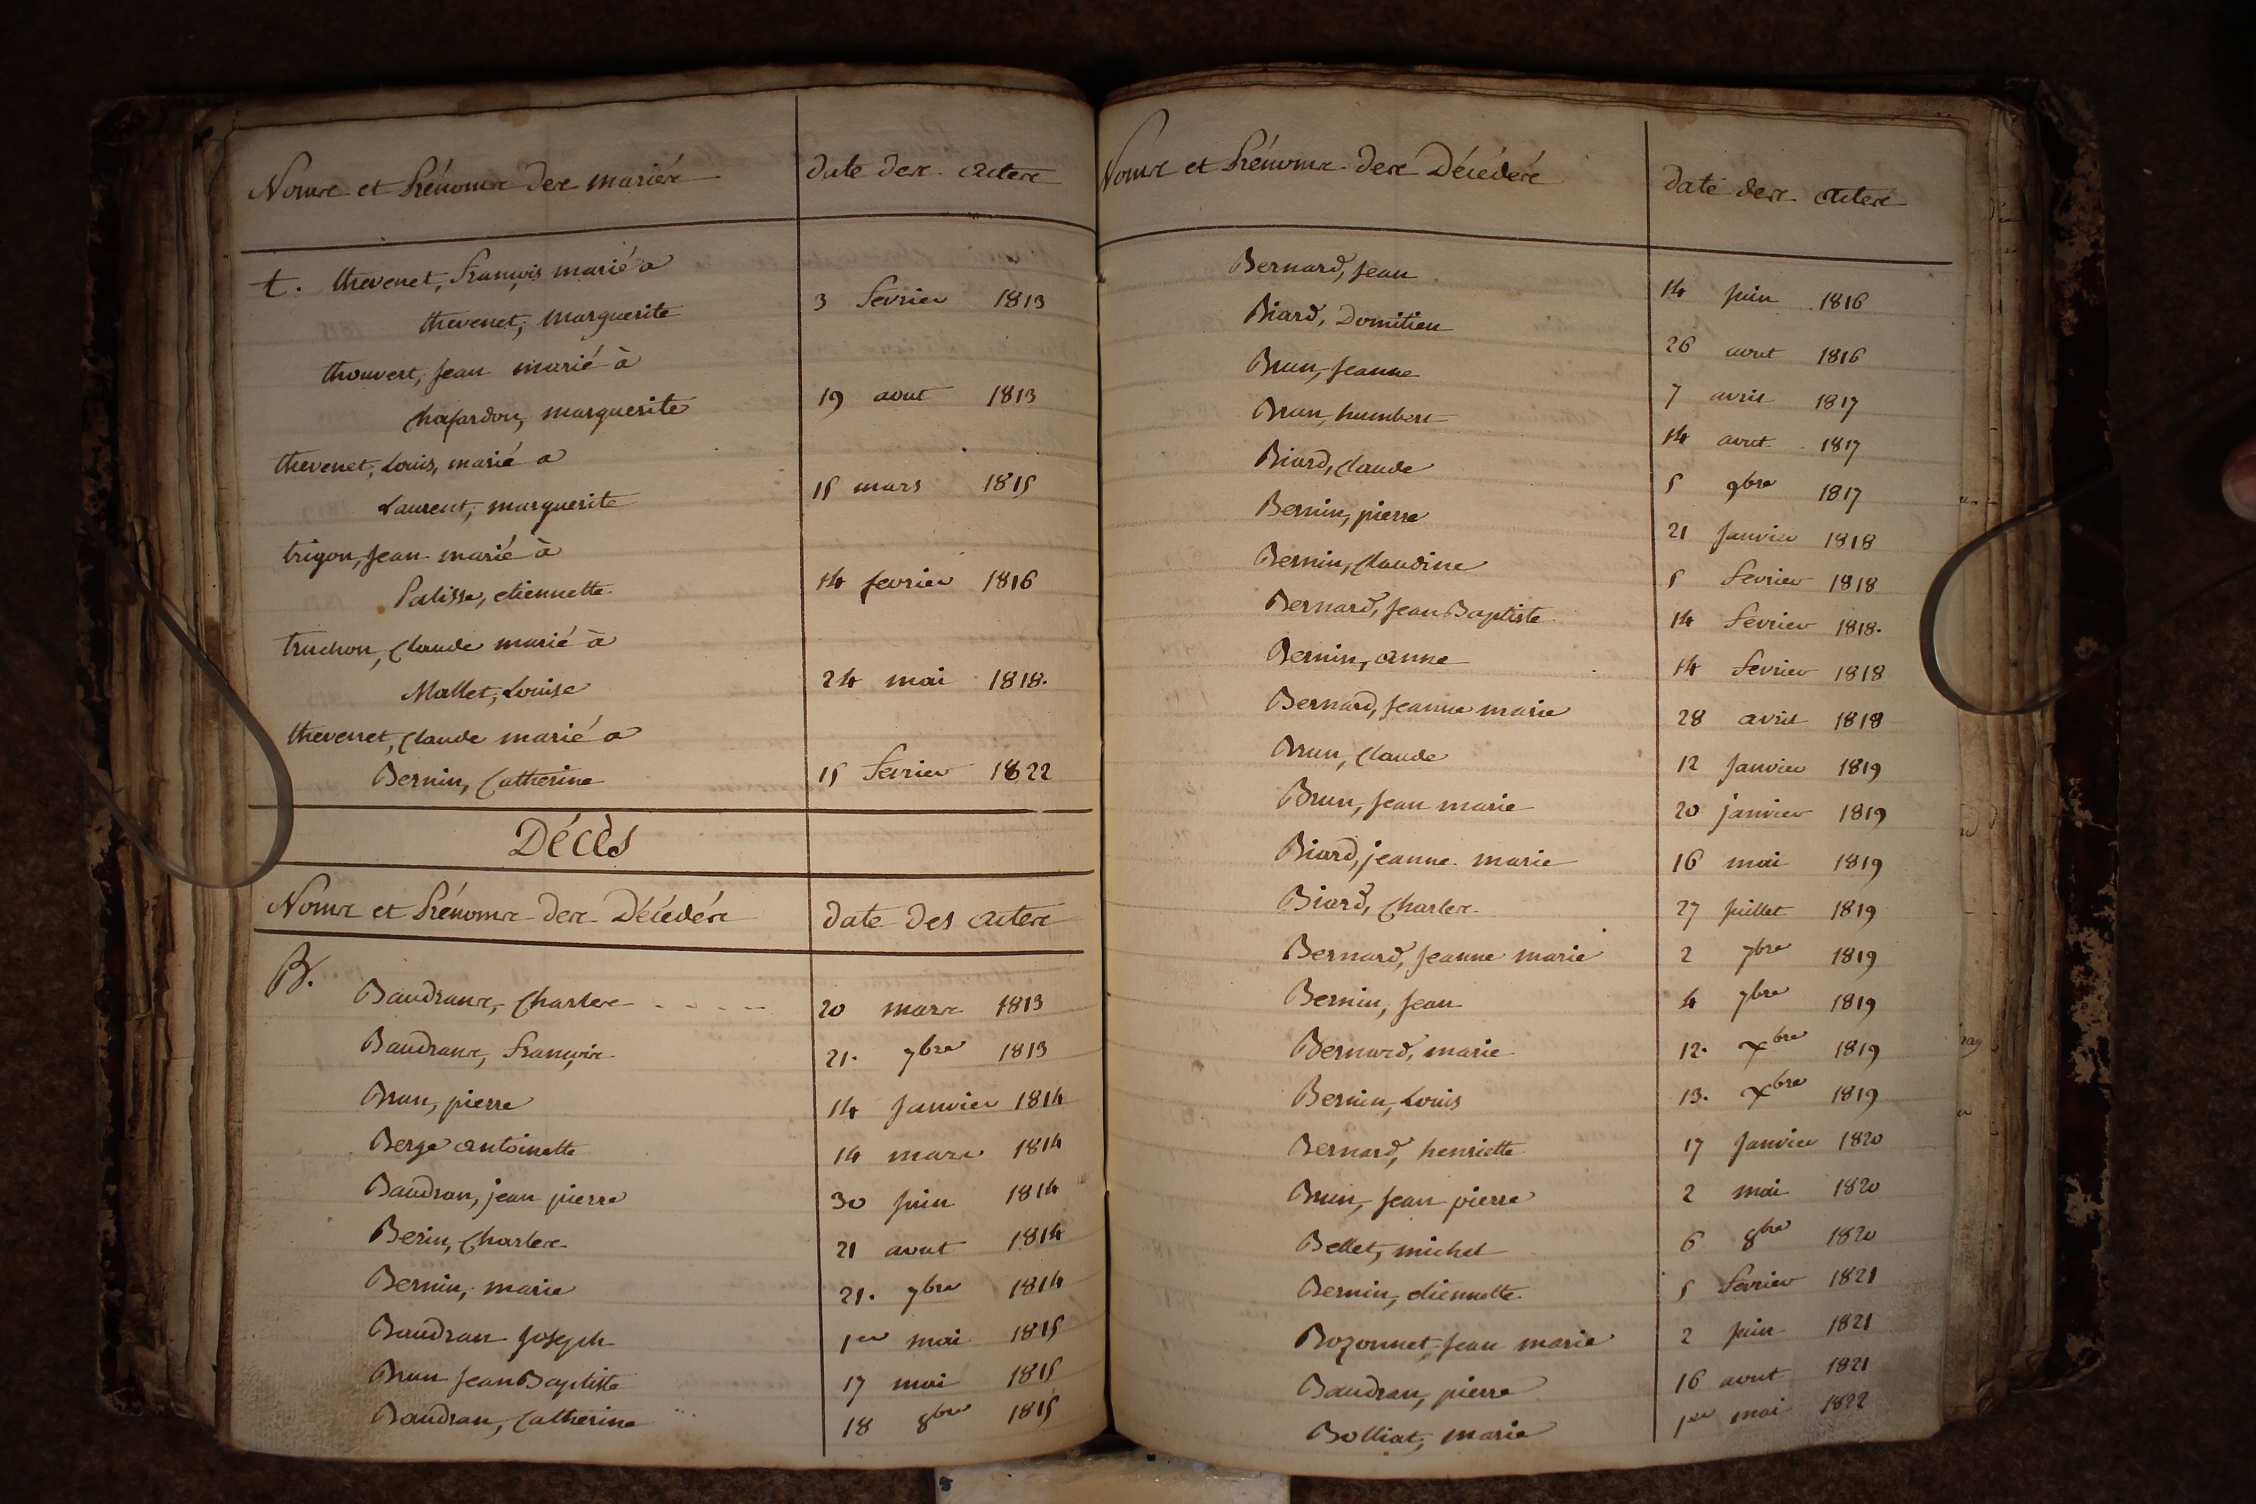 Noms et Prénoms des mariés date des actes
t. thevenet, François marié a
thevenet, marguerite 3 fevrier 1813
thouvert, jean marié à
chafardon, marguerite 19 aout 1813
thevenet, Louis, marié a
Laurent, marguerite 15 mars 1815
trigon, jean marié à
Palisse, etiennette 14 fevrier 1816
truchon, Claude marié à
Mallet, Louise 24 mai 1818.
thevenet, Claude marié a
Bernin, Catherine 15 fevrier 1822
Décès
Noms et Prénoms des Décédés date des actes
B.
Baudrans, Charles - - - - 20 mars 1813
Baudrans, François 21. 7bre 1813
Brun, pierre 14 Janvier 1814
Berge antoinette 14 mars 1814
Baudran, jean pierre 30 juin 1814
Berin, Charles 21 aout 1814
Bernin, marie 21. 7bre 1814
Baudran Joseph 1er mai 1815
Brun Jean Baptiste 17 mai 1815
Baudran, Catherine 18 8bre 1815
Noms et Prénoms des Décédés date des actes
Bernard, Jean 14 juin 1816
Biard, Domitien 26 aout 1816
Brun, Jeanne 7 avril 1817
Brun, humbert 14 aout 1817
Biard, Claude 5 9bre 1817
Bernin, pierre 21 Janvier 1818
Bernin, Claudine 5 fevrier 1818
Bernard, Jean Baptiste 14 fevrier 1818.
Bernin, anne 14 fevrier 1818
Bernard, Jeanne marie 28 avril 1818
Brun, Claude 12 Janvier 1819
Brun, Jean marie 20 janvier 1819
Biard, jeanne marie 16 mai 1819
Biard, Charles 27 Juillet 1819
Bernard, Jeanne marie 2 7bre 1819
Bernin, Jean 4 7bre 1819
Bernard, marie 12. Xbre 1819
Bernin, Louis 13. Xbre 1819
Bernard, henriette 17 Janvier 1820
Brun, Jean pierre 2 mai 1820
Bellet, michel 6 8bre 1820
Bernin, etiennette 5 fevrier 1821
Bozonnet, Jean marie 2 Juin 1821
Baudran, pierre 16 aout 1821
Bolliat, marie 1er mai 1822